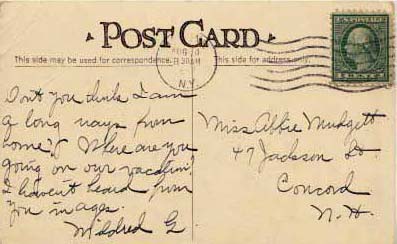 POST CARD
This side may be used for correspondence.
This side is for address only.
AUG
N.Y.
U.S. POSTAGE
Don't you think I am
a long ways from
home? Where are you
going on our vacation?
I haven't heard from
you in ages.
Mildred G.
Miss Abbie Mudgett
47 Jackson St
Concord
N.H.